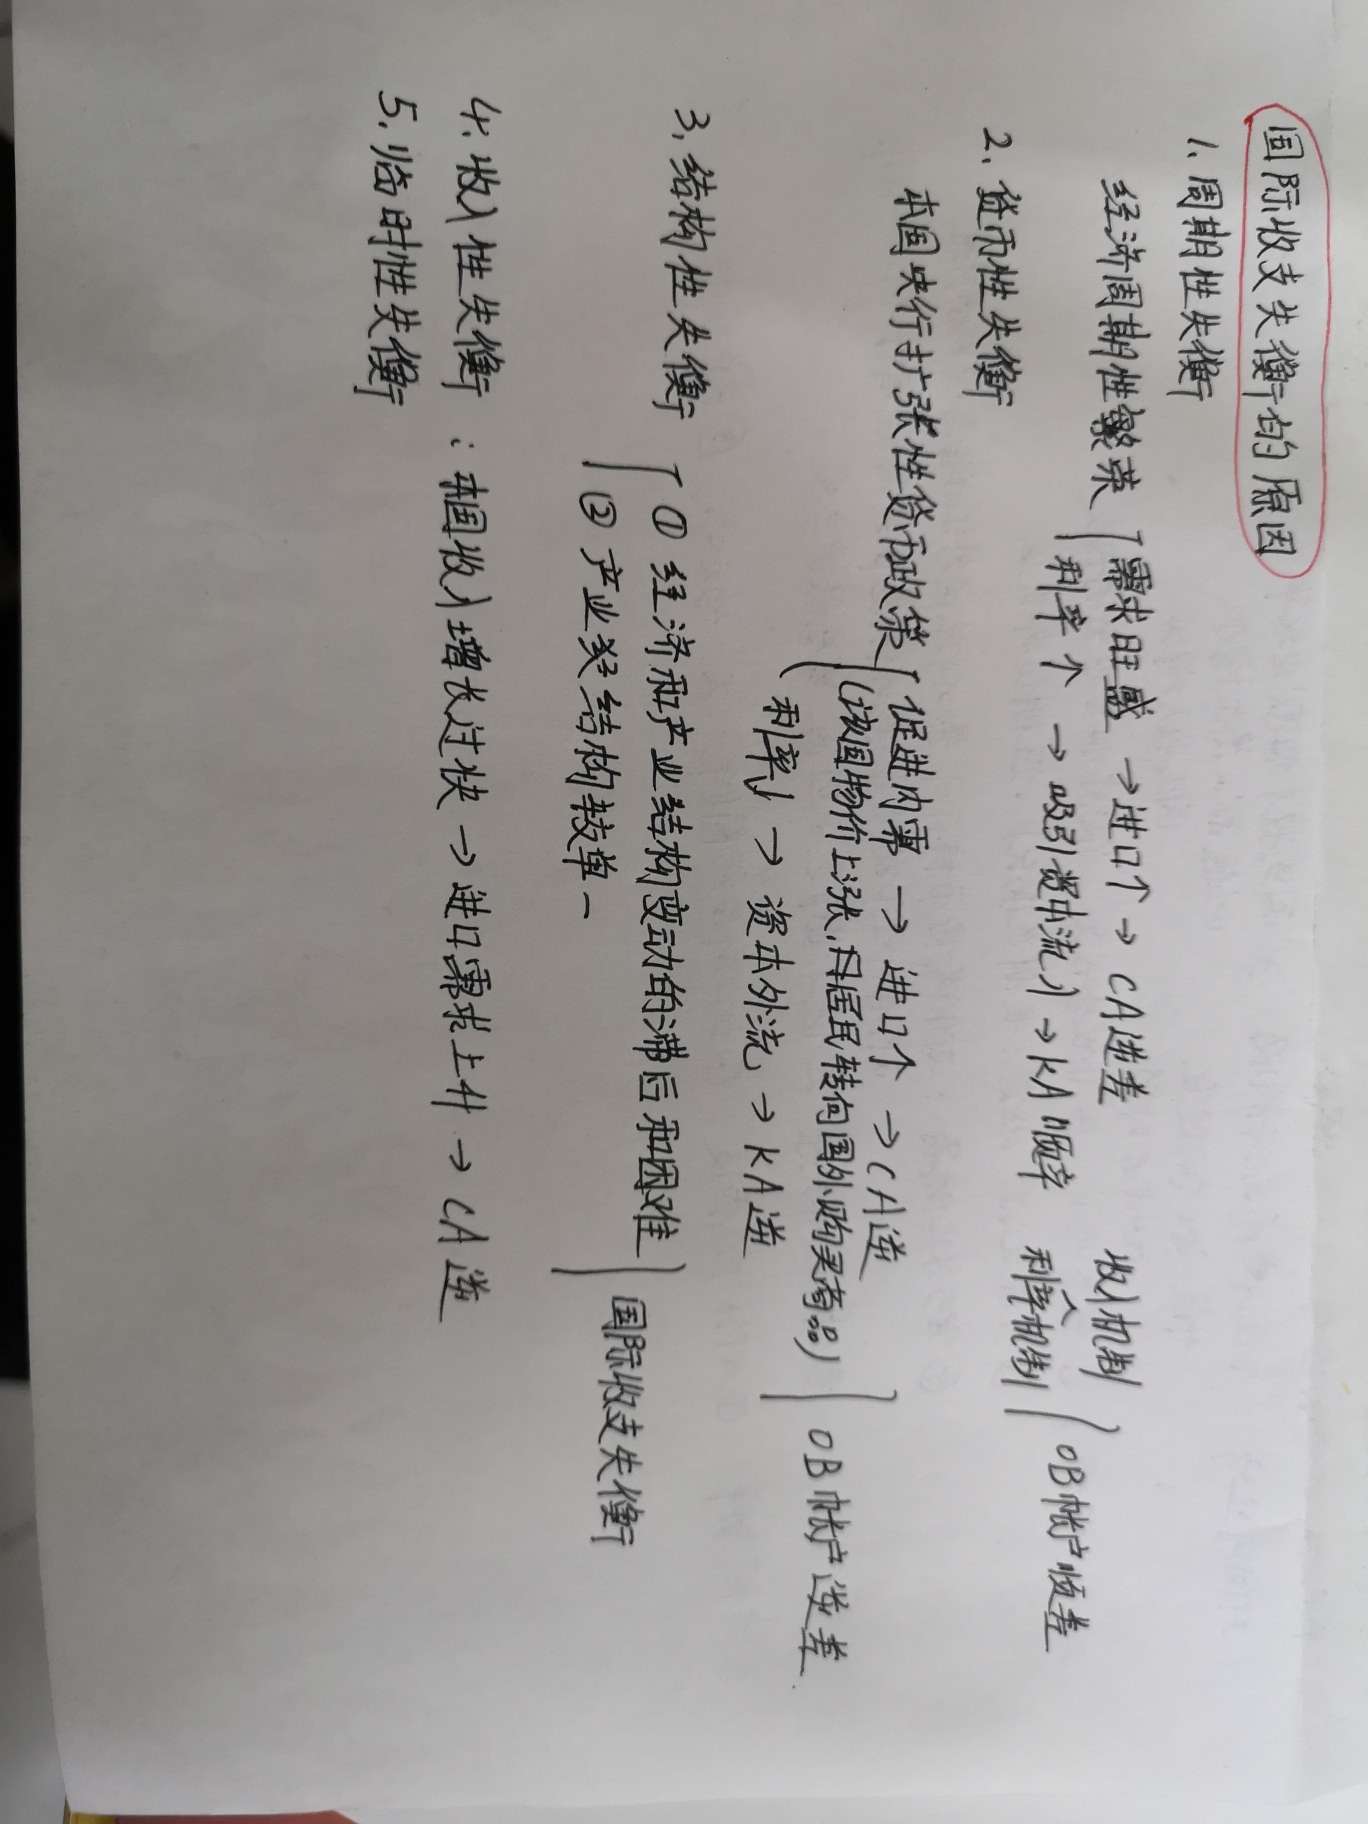 国际收支失衡的原因
1、周期性失衡
经济周期性繁荣 需求旺盛 → 进口↑ → CA逆差 收入机制
利率↑ → 吸引资本流入 → KA顺差 利率机制
OB帐户顺差
2、货币性失衡
本国央行扩张性货币政策 促进内需 → 进口↑ → CA逆
(该国物价上涨,居民转向国外购买商品)
利率↓ → 资本外流 → KA逆
OB帐户逆差
3、结构性失衡
① 经济和产业结构变动的滞后和困难
② 产业结构较单一
国际收支失衡
4、收入性失衡:本国收入增长过快 → 进口需求上升 → CA逆
5、临时性失衡